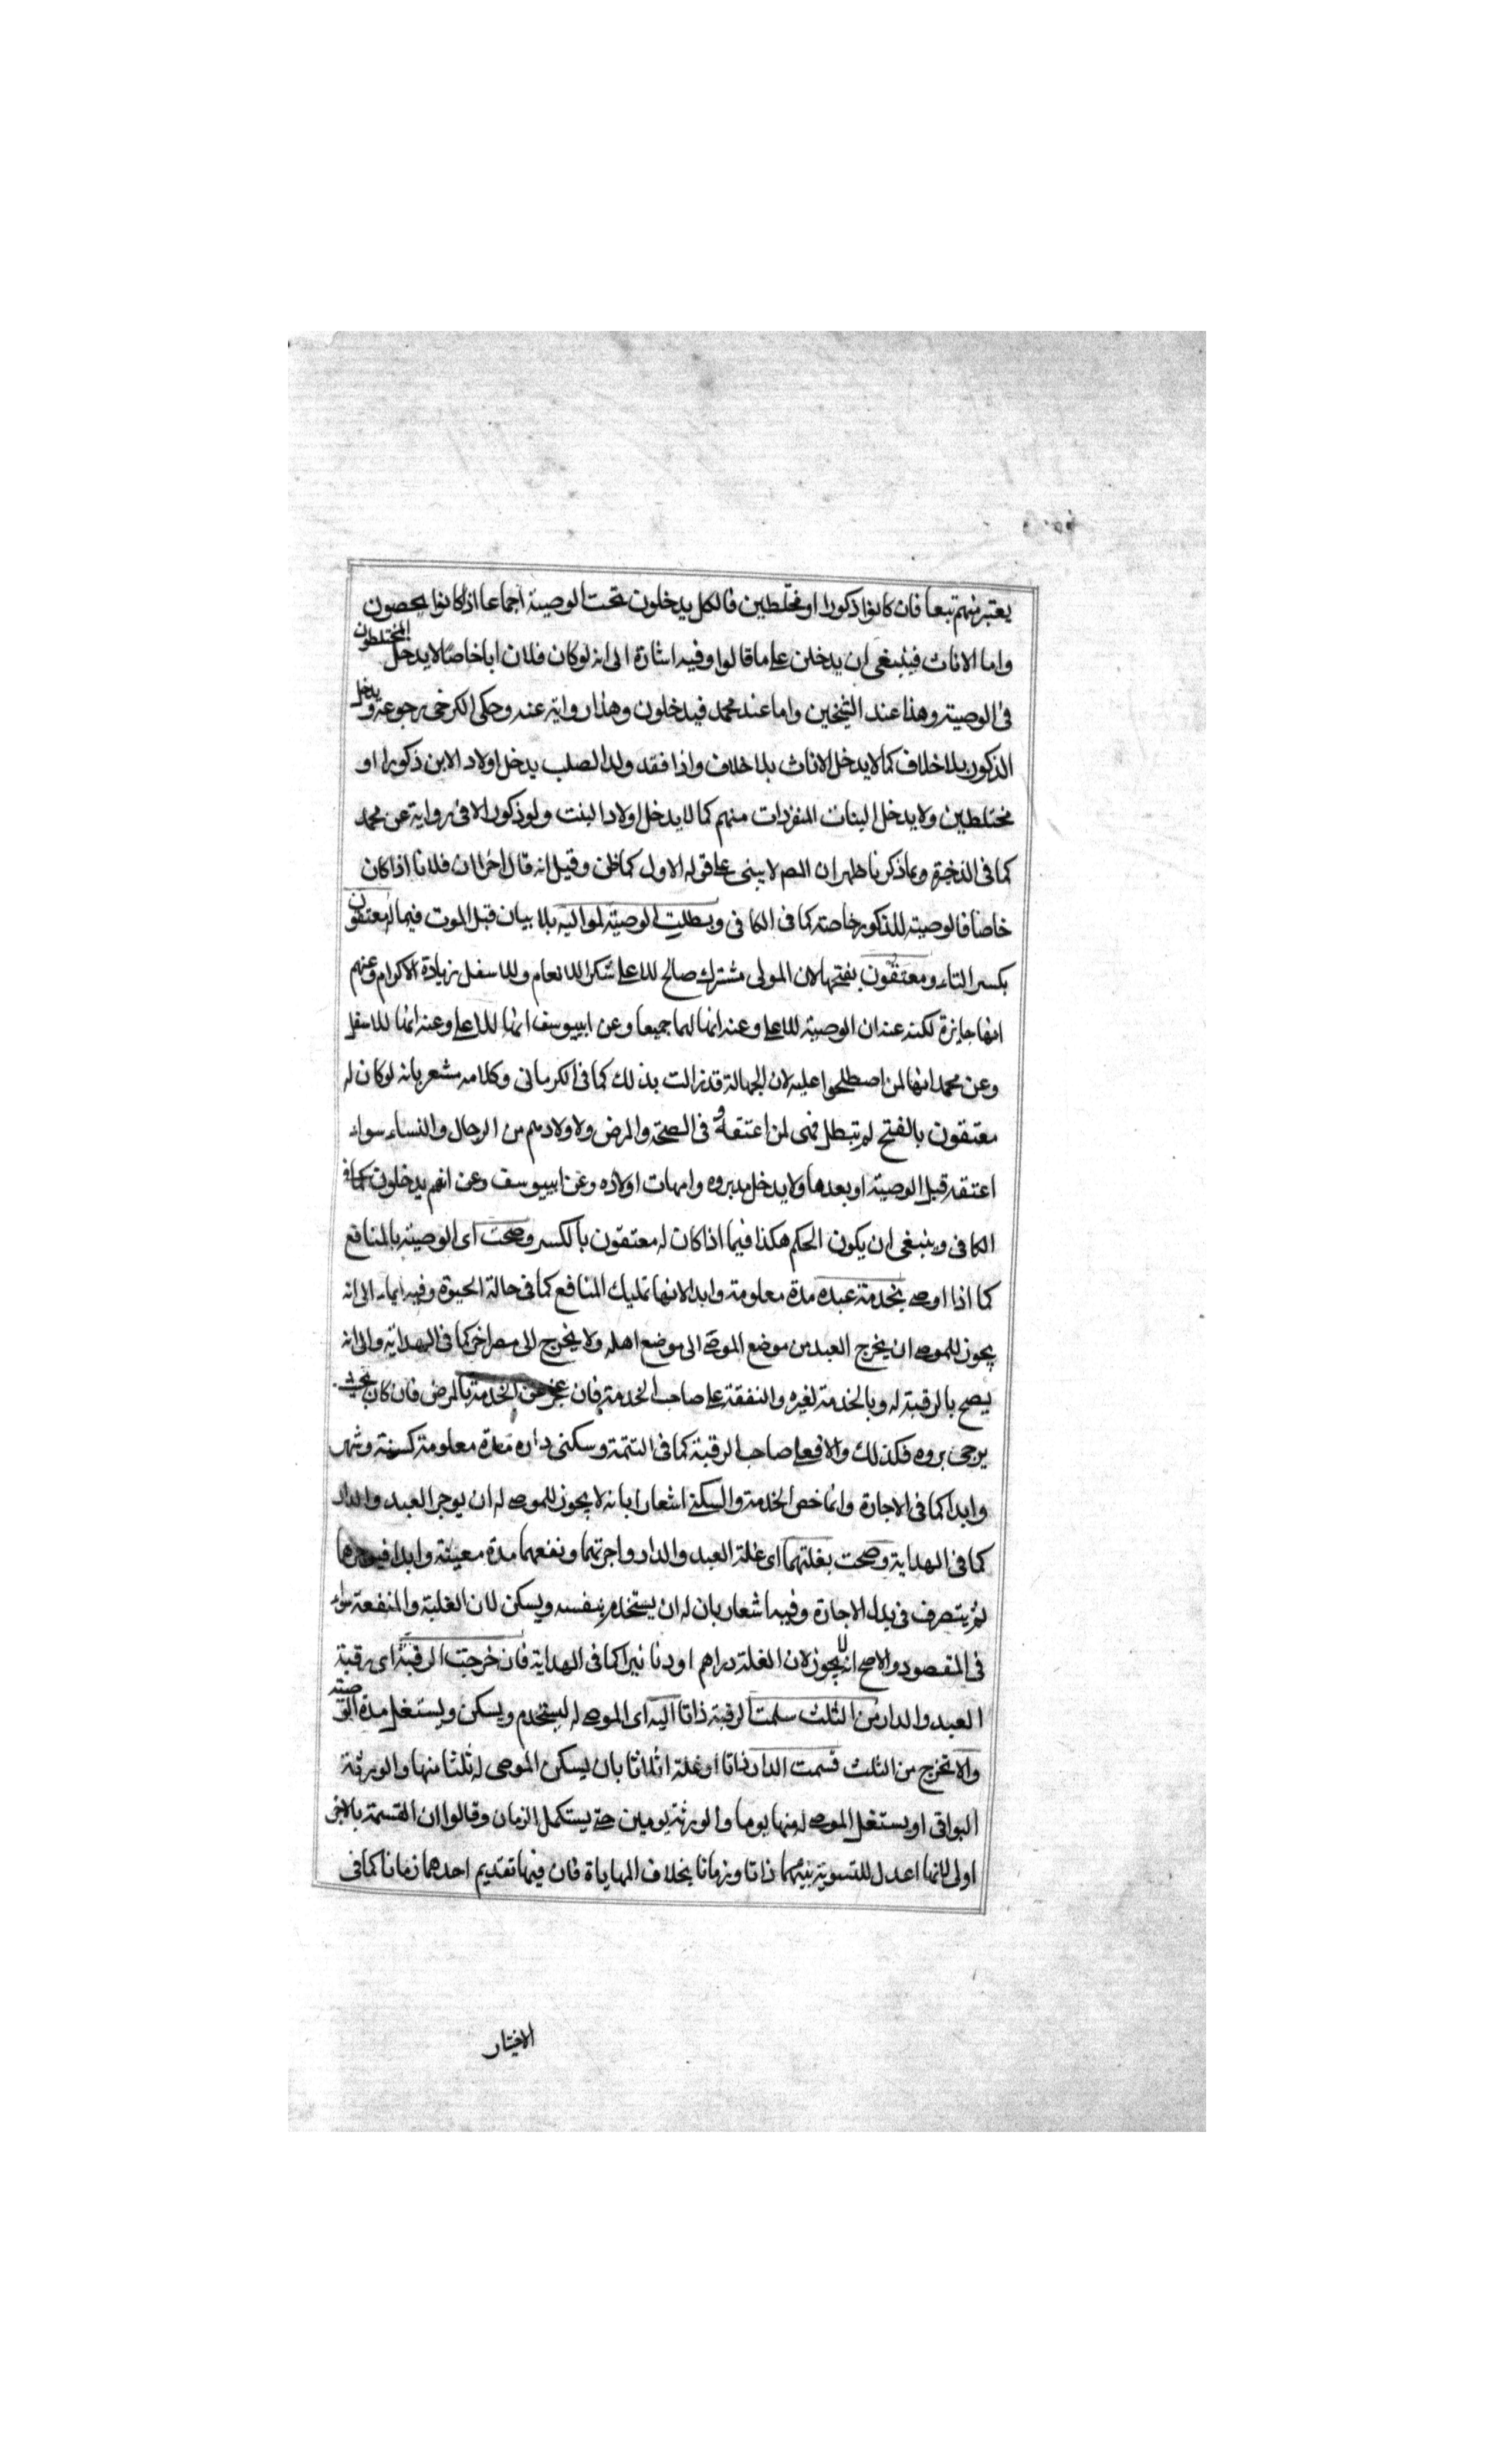 يعتبر منهم تبعا فان كانوا ذكورا او مختلطين فالكل يدخلون تحت الوصية اجماعا اذا كانوا يحصون
واما الاناث فينبغى ان يدخلن على ما قالوا وفيه اشارة الى انه لو كان فلان ابا خاصا لا يدخل المختلطون
فى الوصية وهذا عند الشيخين واما عند محمد فيدخلون وهذا رواية عنه وحكى الكرخى رجوعه ويدخل
الذكور بلا خلاف كما لا يدخل الاناث بلا خلاف واذا فقد ولد الصلب يدخل اولاد الابن ذكورا او
مختلطين ولا يدخل البنات المنفردات منهم كما لا يدخل اولاد البنت ولو ذكورا الا فى رواية عن محمد
كما فى الذخيرة وبما ذكرنا ظهر ان المص لا يبنى على قوله الاول كما ظن وقيل انه قال اخرا ان فلانا اذا كان
خاصا فالوصية للذكور خاصة كما فى الكافى وبطلت الوصية لمواليه بلا بيان قبل الموت فيما له معتقون
بكسر التاء ومعتقون بفتحها لان المولى مشترك صالح للاعلى شكرا للانعام وللاسفل زيادة الاكرام وعنهم
انها جايزة لكنه عند ان الوصية للاعلى وعنه انها لهما جميعا وعن ابييوسف انها للاعلى وعنه انها للاسفل
وعن محمد انها لمن اصطلحوا عليه لان الجهالة قد زالت بذلك كما فى الكرمانى وكلامه مشعر بانه لو كان له
معتقون بالفتح لم تبطل فهى لمن اعتقه فى الصحة والمرض ولاولادهم من الرجال والنساء سواء
اعتقه قبل الوصية او بعدها ولا يدخل مدبروه وامهات اولاده وعن ابييوسف وعن انهم يدخلون كما فى
الكافى وينبغى ان يكون الحكم هكذا فيما اذا كان له معتقون بالكسر وصحت اى الوصية بالمنافع
كما اذا اوصى بخدمة عبده مدة معلومة وابدا لانها تمليك المنافع كما فى حالة الحيوة وفيه ايماء الى انه
يجوز للموصى ان يخرج العبد من موضع الموصى الى موضع اهله ولا يخرج الى مصر اخر كما فى الهداية والى انه
يصح بالرقبة له وبالخدمة لغيره والنفقة على صاحب الخدمة فان عجز عن الخدمة بالمرض فان كان بحيث
يرجى بروه فكذلك والا فعلى صاحب الرقبة كما فى التتمة وسكنى داره مدة معلومة كسنة وشهر
وابدا كما فى الاجارة وانما خص الخدمة والسكنى اشعارا بانه لا يجوز للموصى له ان يوجر العبد والدار
كما فى الهداية وصحت بغلتهما اى غلة العبد والدار واجرتهما ونفعهما مدة معينة وابدا فيوجرها
ثم يتصرف فى بدل الاجارة وفيه اشعار بان له ان يستخدم بنفسه ويسكن لان الغلبة والمنفعة سواء
فى المقصود والاصح انه لا يجوز لان الغلة دراهم او دنانير كما فى الهداية فان خرجت الرقبة اى رقبة
العبد والدار من الثلث سلمت الرقبة ذاتا اليه اى الموصى له ليستخدم ويسكن ويستغل مدة الوصية
والا تخرج من الثلث قسمت الدار ذاتا او غلة اثلاثا بان يسكن الموصى له ثلثا منها والورثة
البواقى او يستغل الموصى له منها يوما والورثة يومين حتى يستكمل الزمان وقالوا ان القسمة بالاجزا
اولى لانها اعدل للتسوية بينهما ذاتا وزمانا بخلاف المهاياة فان فيها تقديم احدهما زمانا كما فى
الاختيار